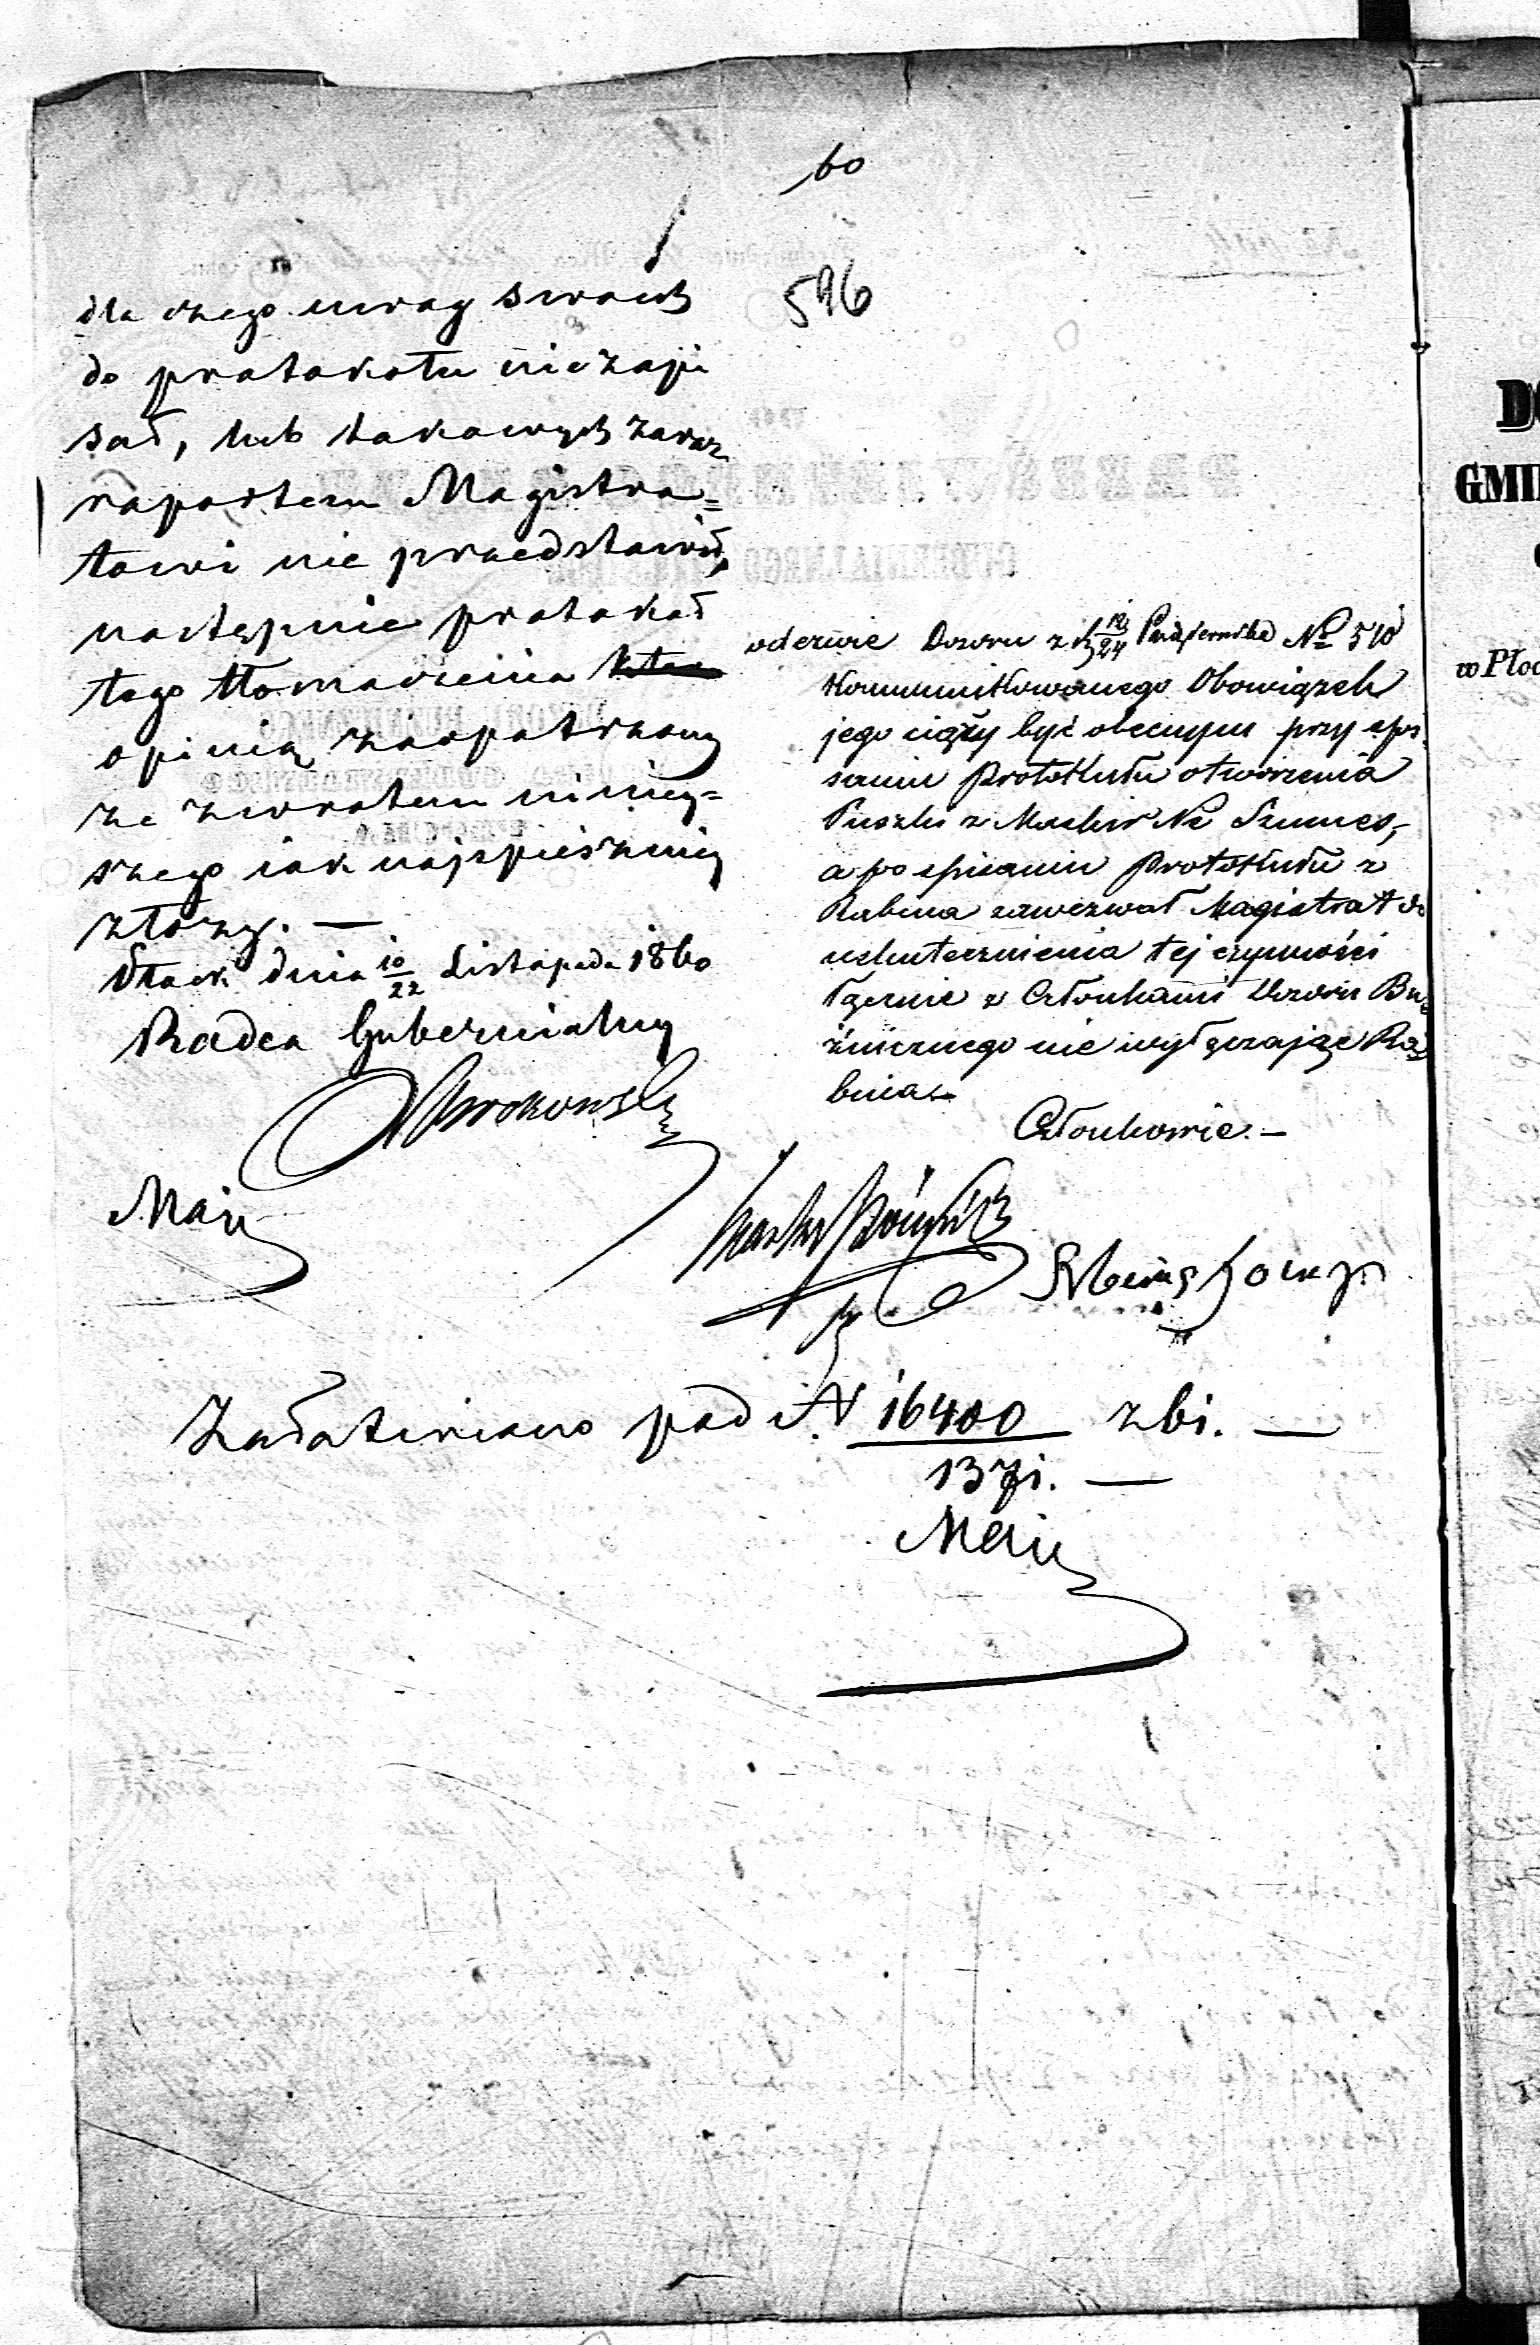 60
596
dla czego uwag swoich
do protokołu nie zapi
sał, lub takowych zaraz
raportem Magistra=
towi nie przedstawił,
następnie protokół
tego tłomaczenia
opinią zaopatrzony
ze zwrotem niniey=
szego iak najspieszniey
złoży. —
Płock dnia 10/22 Listopada 1860
Radca Gubernialny
odezwie Dozoru z d 12/24 Października № 510
kommunikowanego Obowiązek
jego ciąży być obecnym przy spi
saniu Protokułu otworzenia
Puszki z Machir Ne Szumes,
a po spisaniu Protokułu z
Rabina zawezwał Magistrat do
uskutecznienia tej czynności
łącznie z Członkami Dozoru Bu
źniczego nie wyłączając Ra
bina.
Członkowie. —
Załatwiono pod N 16400 zbi. —
137i. —
DO
GMI
w Płoc